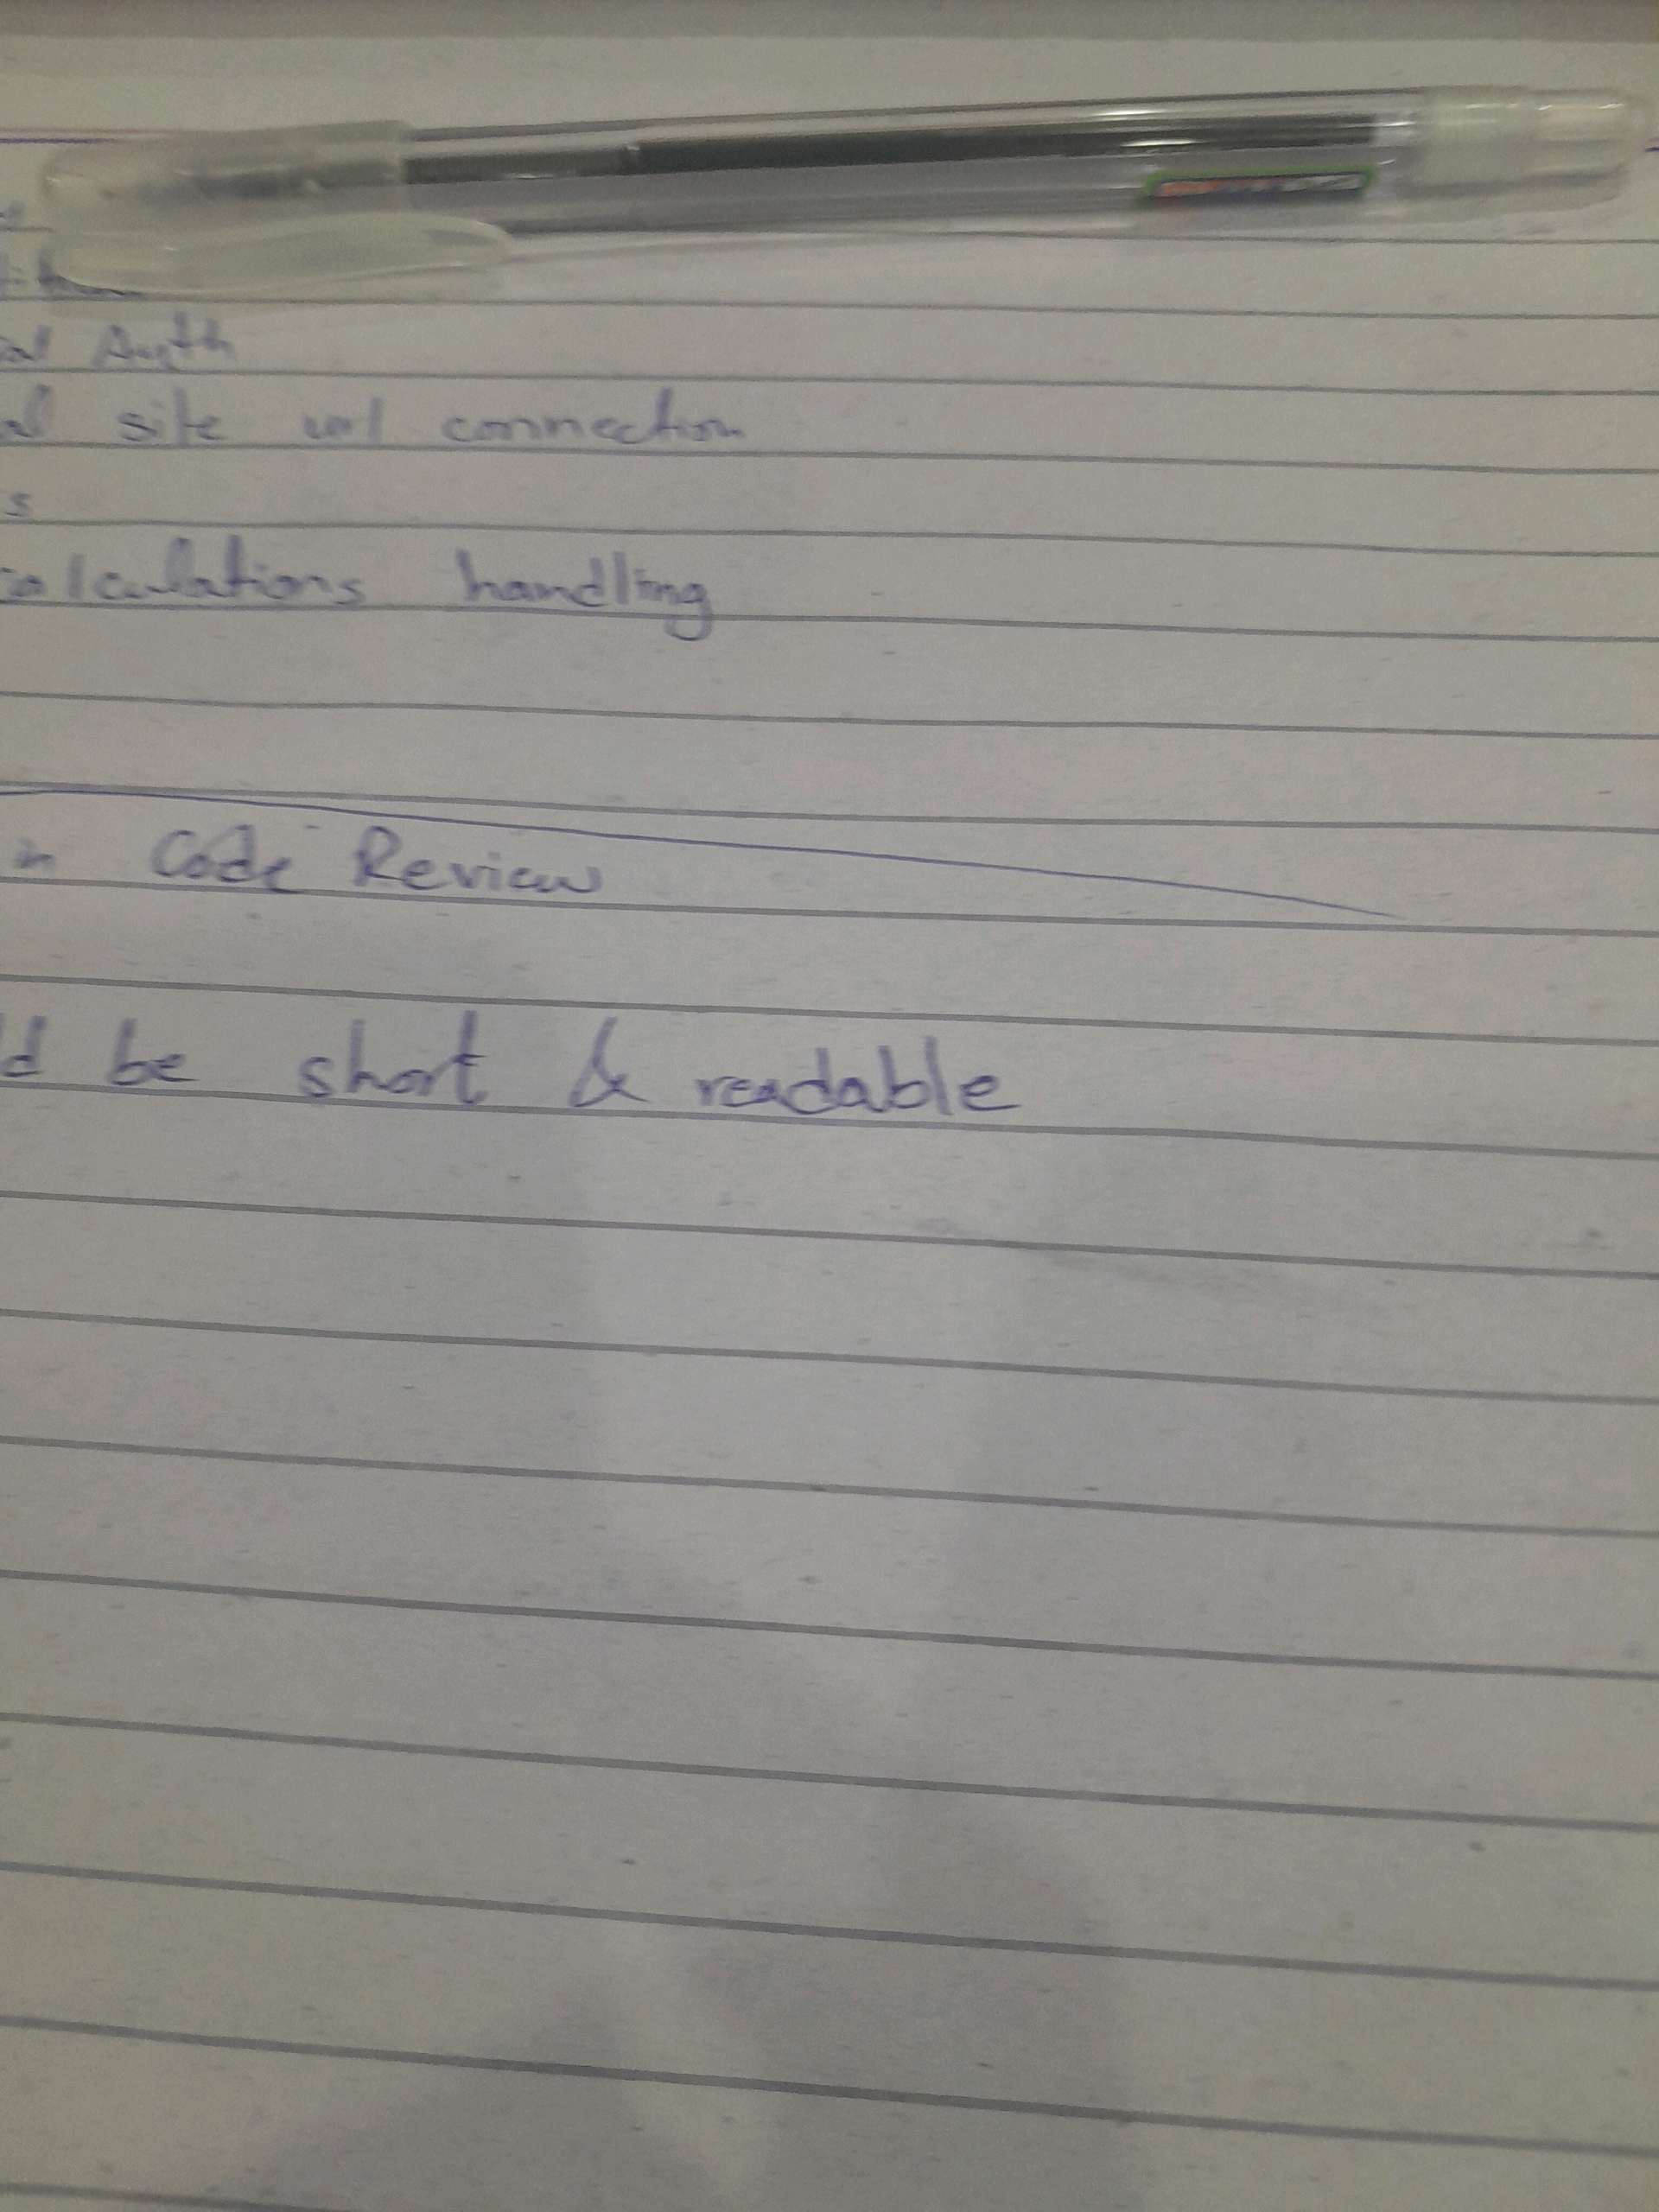 Auth
site url connection
s
calculations handling
in Code Review
d be short & readable